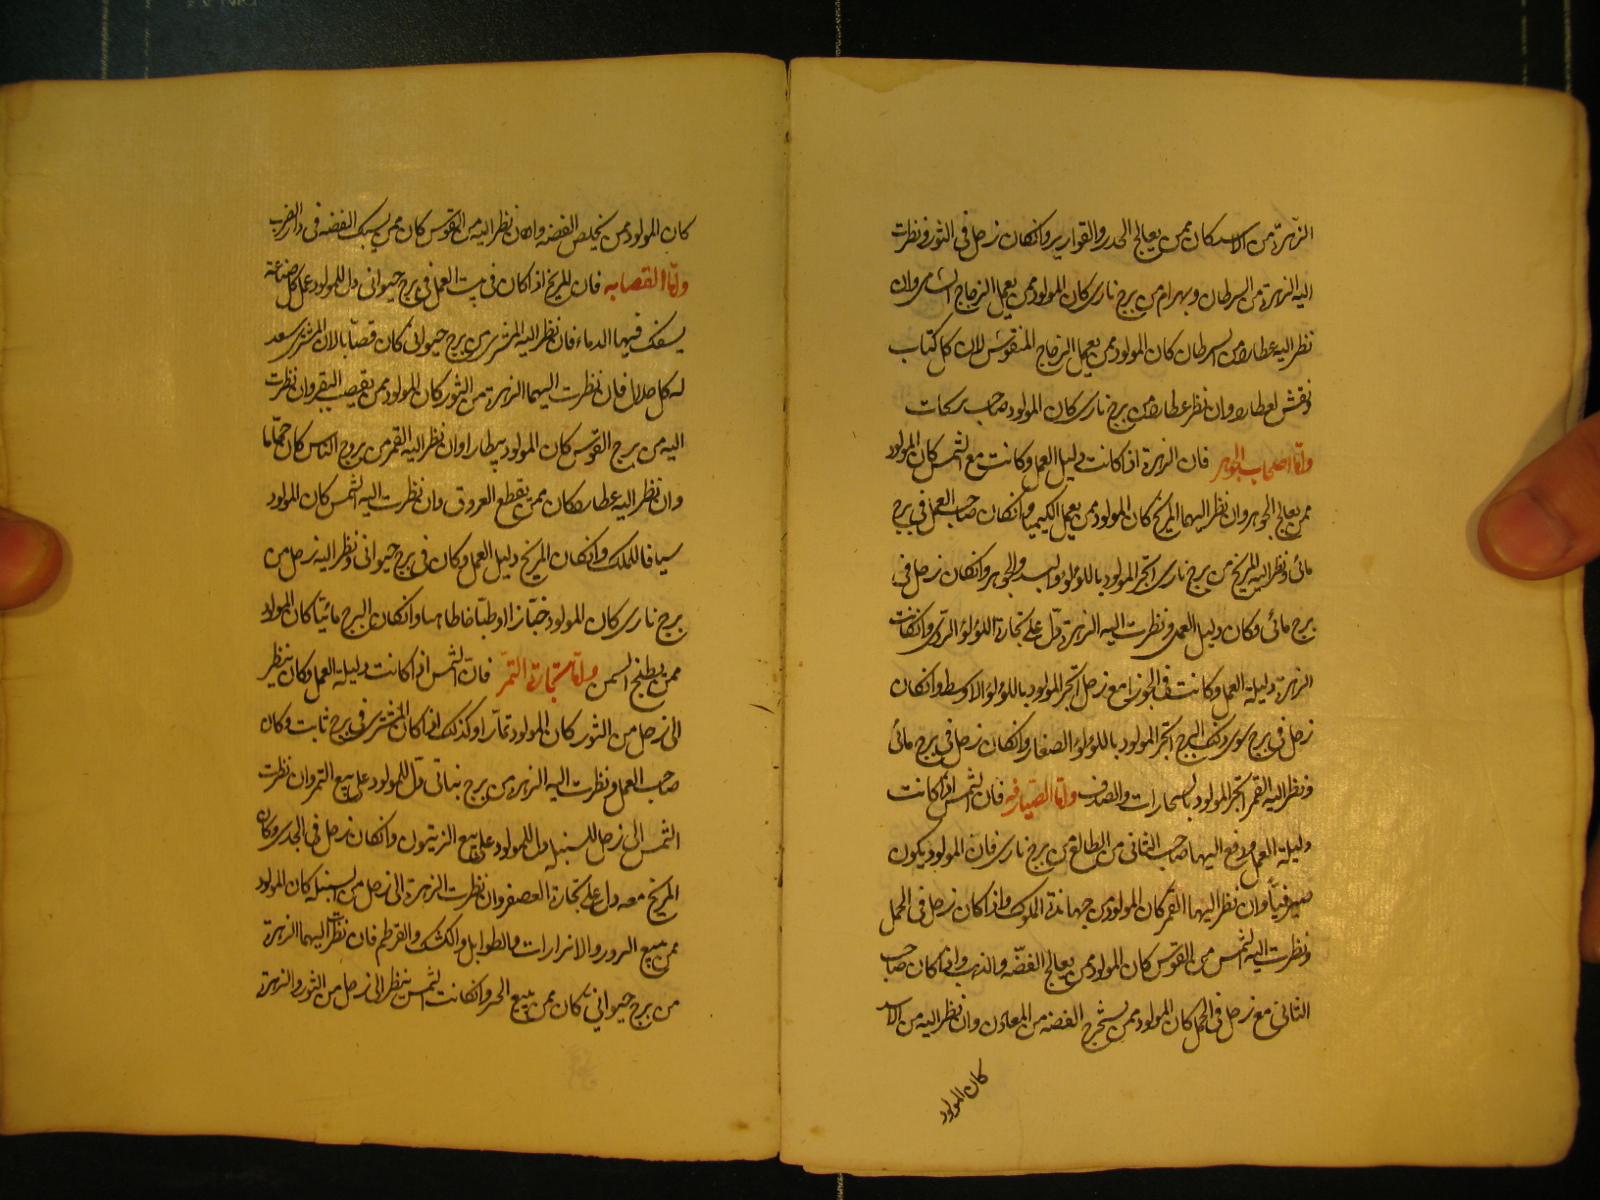 الزهرة من الاسد كان ممن يعالج الجدر والقوارير وان كان زحل فى الثور ونظرت
اليه الزهرة من السرطان وبهرام من برج نارى كان المولود ممن يعمل الزجاج الشامى وان
نظر اليه عطارد من السرطان كان المولود ممن يعمل الزجاج المنقوش لان كل كتاب
ونقش لعطارد وان نظر عطارد من برج نارى كان المولود صاحب
واما اصحاب الجوهر فان الزهرة اذا كانت دليل العمل وكانت مع الشمس كان المولود
ممن يعالج الجوهر وان نظر اليهما المريخ كان المولود ممن يعمل الكيميا وان كان صاحب العمل فى برج
مائى ونظر اليه المريخ من برج نارى اتجر المولود باللولو والبسد والجوهر وان كان زحل فى
برج مائى وكان دليل العمل ونظرت اليه الزهرة دل على تجارة اللولو الردى وان كانت
الزهرة دليلة العمل وكانت فى الجوزا مع زحل اتجر المولود باللولو الاوسط وان كان
زحل فى برج سوى ذلك البرج اتجر المولود باللولو الصغار وان كان زحل فى برج مائى
ونظر اليه القمر اتجر المولود والصدف واما الصيارفه فان الشمس اذا كانت
دليلة العمل ودفع اليها صاحب الثانى من الطالع من برج نارى فان المولود يكون
صيرفيا وان نظر اليهما القمر كان المولود من جهابذة الملوك واذا كان زحل فى الحمل
ونظرت اليه الشمس من القوس كان المولود ممن يعالج الفضة والذهب واذا كان صاحب
الثانى مع زحل فى الحمل كان المولود ممن يستخرج الفضه من المعادن وان نظر اليه من الاسد
كان المولود
كان المولود ممن يخلص الفضه وان نظر اليه من القوس كان ممن يسبك الفضه فى دار الضرب
واما القصابه فان المريخ اذا كان فى بيت العمل فى برج حيوانى دل للمولود على كل صناعة
يسفك فيها الدماء فان نظر اليه المشترى من برج حيوانى كان قصابا لان المشترى سعد
له كل حلال فان نظرت اليهما الزهرة من الثور كان المولود ممن يقصب البقر وان نظرت
اليه من برج القوس كان المولود بيطارا وان نظر اليه القمر من بروج الناس كان حجاما
وان نظر اليه عطارد كان ممن يقطع العروق وان نظرت اليه الشمس كان المولود
سيافا للملك وان كان المريخ دليل العمل وكان فى برج حيوانى ونظر اليه زحل من
برج نارى كان المولود خبازا او طباخا وان كان البرج مائيا كان المولود
ممن يطبخ السمن واما تجارة التمر فان الشمس اذا كانت دليلة العمل وكان ينظر
الى زحل من الثور كان المولود تمارا وكذلك اذا كان المشترى فى برج ثابت وكان
صاحب العمل ونظرت اليه الزهره من برج نباتى دل للمولود على بيع التمر وان نظرت
الشمس الى زحل للسنبله دل للمولود على بيع الزيتون وان كان زحل فى الجدى وكان
المريخ معه دل على تجارة العصفر وان نظرت الزهرة الى زحل من السنبله كان المولود
ممن يبيع والكشك والقرطم فان نظرت اليهما الزهرة
من برج حيوانى كان ممن يبيع وان كانت الشمس ينظر الى زحل من الثور والزهرة